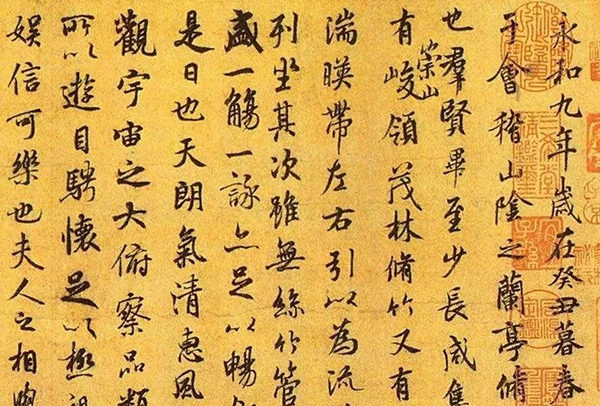 永和九年歲在癸丑暮春
于會稽山陰之蘭亭脩
也羣賢畢至少長咸集
有崇山峻領茂林脩竹又有
湍暎帶左右引以為流
列坐其次雖無絲竹管
盛一觴一詠亦足以暢
是日也天朗氣清惠風
觀宇宙之大俯察品類
所以遊目騁懷足以極
娛信可樂也夫人之相